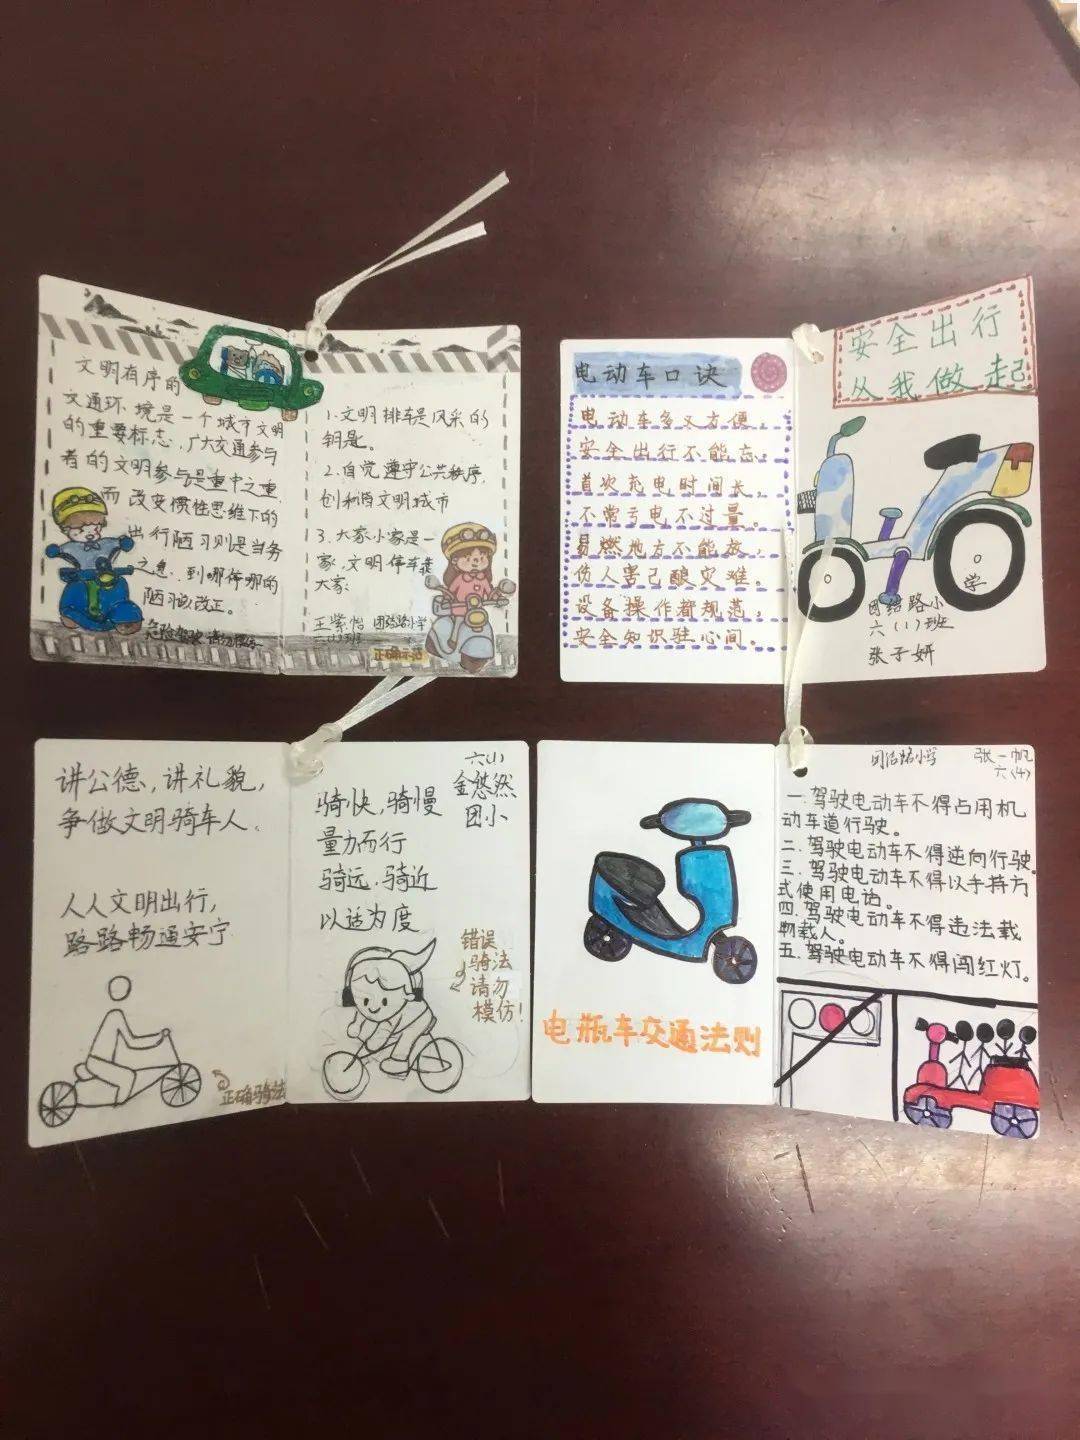 文明有序的
交通环境是一个城市文明
的重要标志，广大交通参与
者的文明参与是重中之重，
而改变惯性思维下的
出行陋习则是当务
之急，到哪停哪的
陋习该改正。
危险驾驶 请勿模仿
1.文明排车是风采的
钥匙。
2.自觉遵守公共秩序，
创和谐文明城市
3.大家小家是一
家，文明停车进
大家
王紫怡 团结路小学
六(1)班
正确示范
电动车口诀
电动车多又方便，
安全出行不能忘。
首次充电时间长，
不常亏电不过量。
易燃地方不能放，
伤人害己酿灾难。
设备操作都规范，
安全知识驻心间。
安全出行
从我做起
团结路小学
六（1）班
张子妍
讲公德、讲礼貌，
争做文明骑车人。
人人文明出行，
路路畅通安宁
正确骑法
六(1)
金悠然
团小
骑快，骑慢
量力而行
骑远，骑近
以适为度
错误
骑法
请勿
模仿！
电瓶车交通法则
团结路小学 张一帆
六(4)
一.驾驶电动车不得占用机
动车道行驶。
二.驾驶电动车不得逆向行驶。
三.驾驶电动车不得以手持方
式使用电话。
四.驾驶电动车不得违法载
物载人。
五.驾驶电动车不得闯红灯。